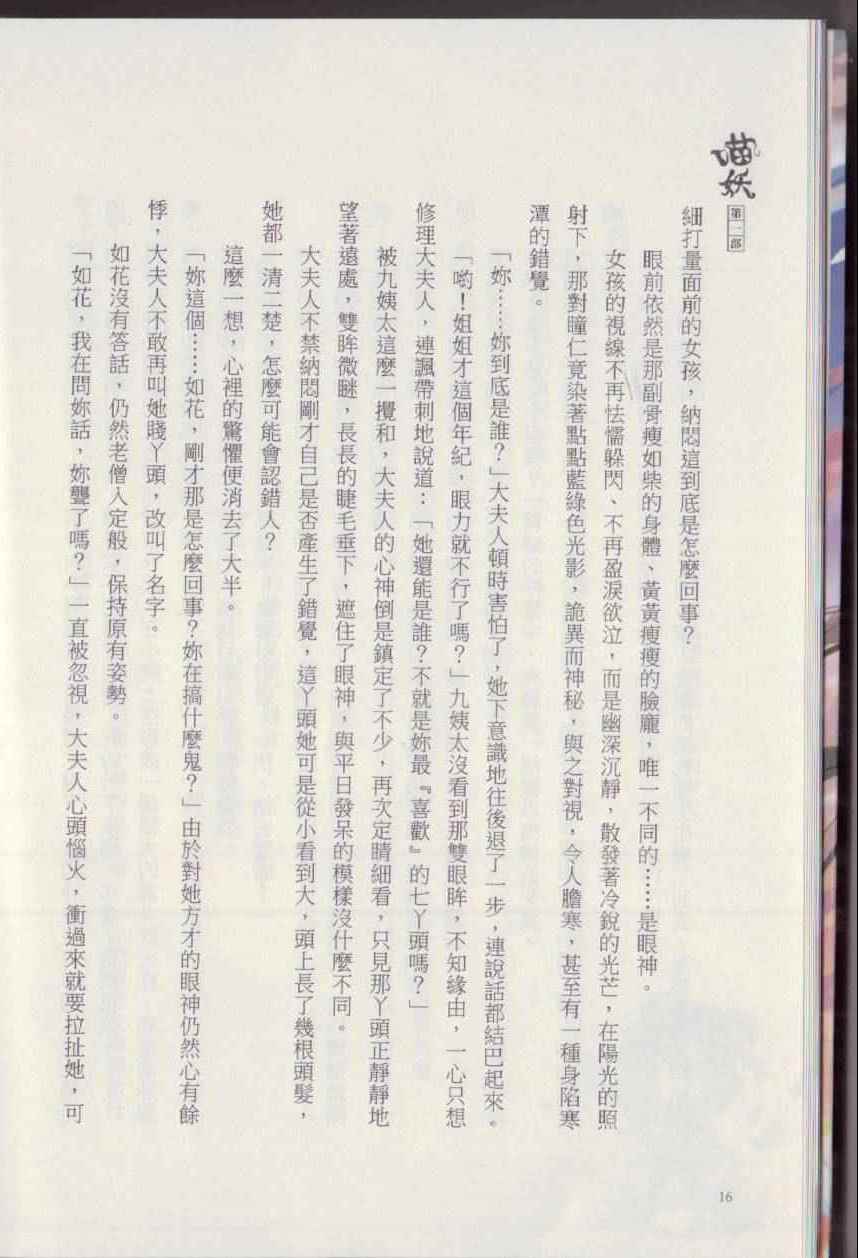 喵妖
第一部
細打量面前的女孩，納悶這到底是怎麼回事？
眼前依然是那副骨瘦如柴的身體、黃黃瘦瘦的臉龐，唯一不同的……是眼神。
女孩的視線不再怯懦躲閃、不再盈淚欲泣，而是幽深沉靜，散發著冷銳的光芒，在陽光的照
射下，那對瞳仁竟染著點點藍綠色光影，詭異而神秘，與之對視，令人膽寒，甚至有一種身陷寒
潭的錯覺。
「妳……妳到底是誰？」大夫人頓時害怕了，她下意識地往後退了一步，連說話都結巴起來。
「喲！姐姐才這個年紀，眼力就不行了嗎？」九姨太沒看到那雙眼眸，不知緣由，一心只想
修理大夫人，連諷帶刺地說道：「她還能是誰？不就是妳最『喜歡』的七丫頭嗎？」
被九姨太這麼一攪和，大夫人的心神倒是鎮定了不少，再次定睛細看，只見那丫頭正靜靜地
望著遠處，雙眸微瞇，長長的睫毛垂下，遮住了眼神，與平日發呆的模樣沒什麼不同。
大夫人不禁納悶剛才自己是否產生了錯覺，這丫頭她可是從小看到大，頭上長了幾根頭髮，
她都一清二楚，怎麼可能會認錯人？
這麼一想，心裡的驚懼便消去了大半。
「妳這個……如花，剛才那是怎麼回事？妳在搞什麼鬼？」由於對她方才的眼神仍然心有餘
悸，大夫人不敢再叫她賤丫頭，改叫了名字。
如花沒有答話，仍然老僧入定般，保持原有姿勢。
「如花，我在問妳話，妳聾了嗎？」一直被忽視，大夫人心頭惱火，衝過來就要拉扯她，可
16